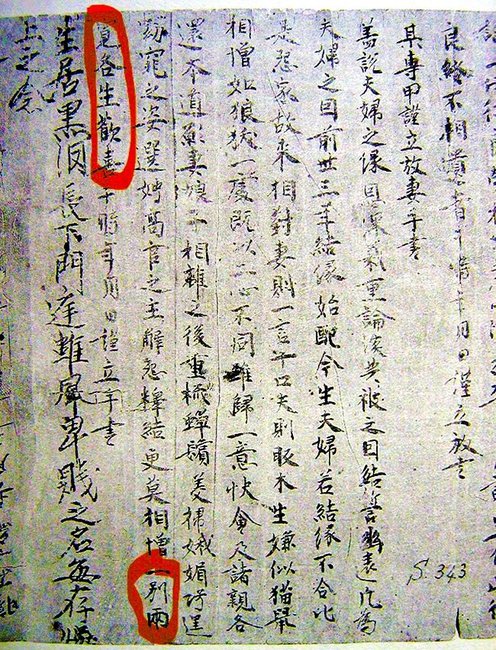 良終不相遺者于時年月日謹立放書
某專甲謹立放妻手書
盖説夫婦之緣恩深義重論談共被之因結誓幽遠凡為
夫婦之因前世三年結緣始配今生夫婦若結緣不合比
是怨家故來相對妻則一言十口夫則販木生嫌似猫鼠
相憎如狼羊一處既以二心不同難歸一意快會及諸親各
還本道願妻娘子相離之後重梳蟬鬢美掃娥媚巧逞
窈窕之姿選娉高官之主解怨釋結更莫相憎一別兩
寬各生歡喜于時年月日謹立手書
生居黑 長下門庭雖 卑賤之名每存
上之念
S.343